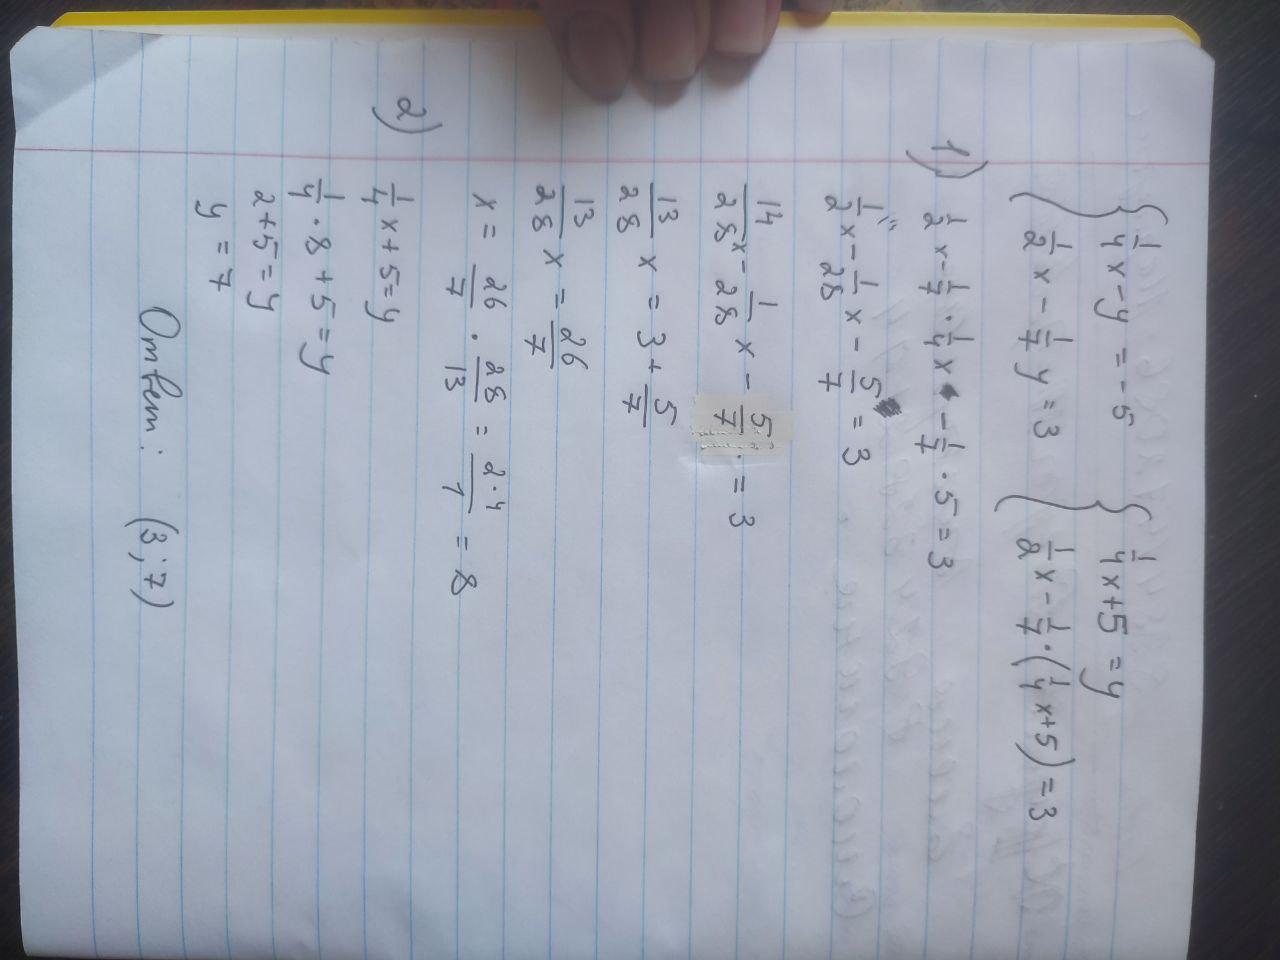 { 1/4 x - y = -5 { 1/4 x + 5 = y
{ 1/2 x - 1/7 y = 3 { 1/2 x - 1/7 · (1/4 x + 5) = 3
1) 1/2 x - 1/7 · 1/4 x - 1/7 · 5 = 3
1/2 x - 1/28 x - 5/7 = 3
14/28 x - 1/28 x - 5/7 = 3
13/28 x = 3 + 5/7
13/28 x = 26/7
x = 26/7 · 28/13 = 2·4/1 = 8
2) 1/4 x + 5 = y
1/4 · 8 + 5 = y
2 + 5 = y
y = 7
Ответ: (3; 7)